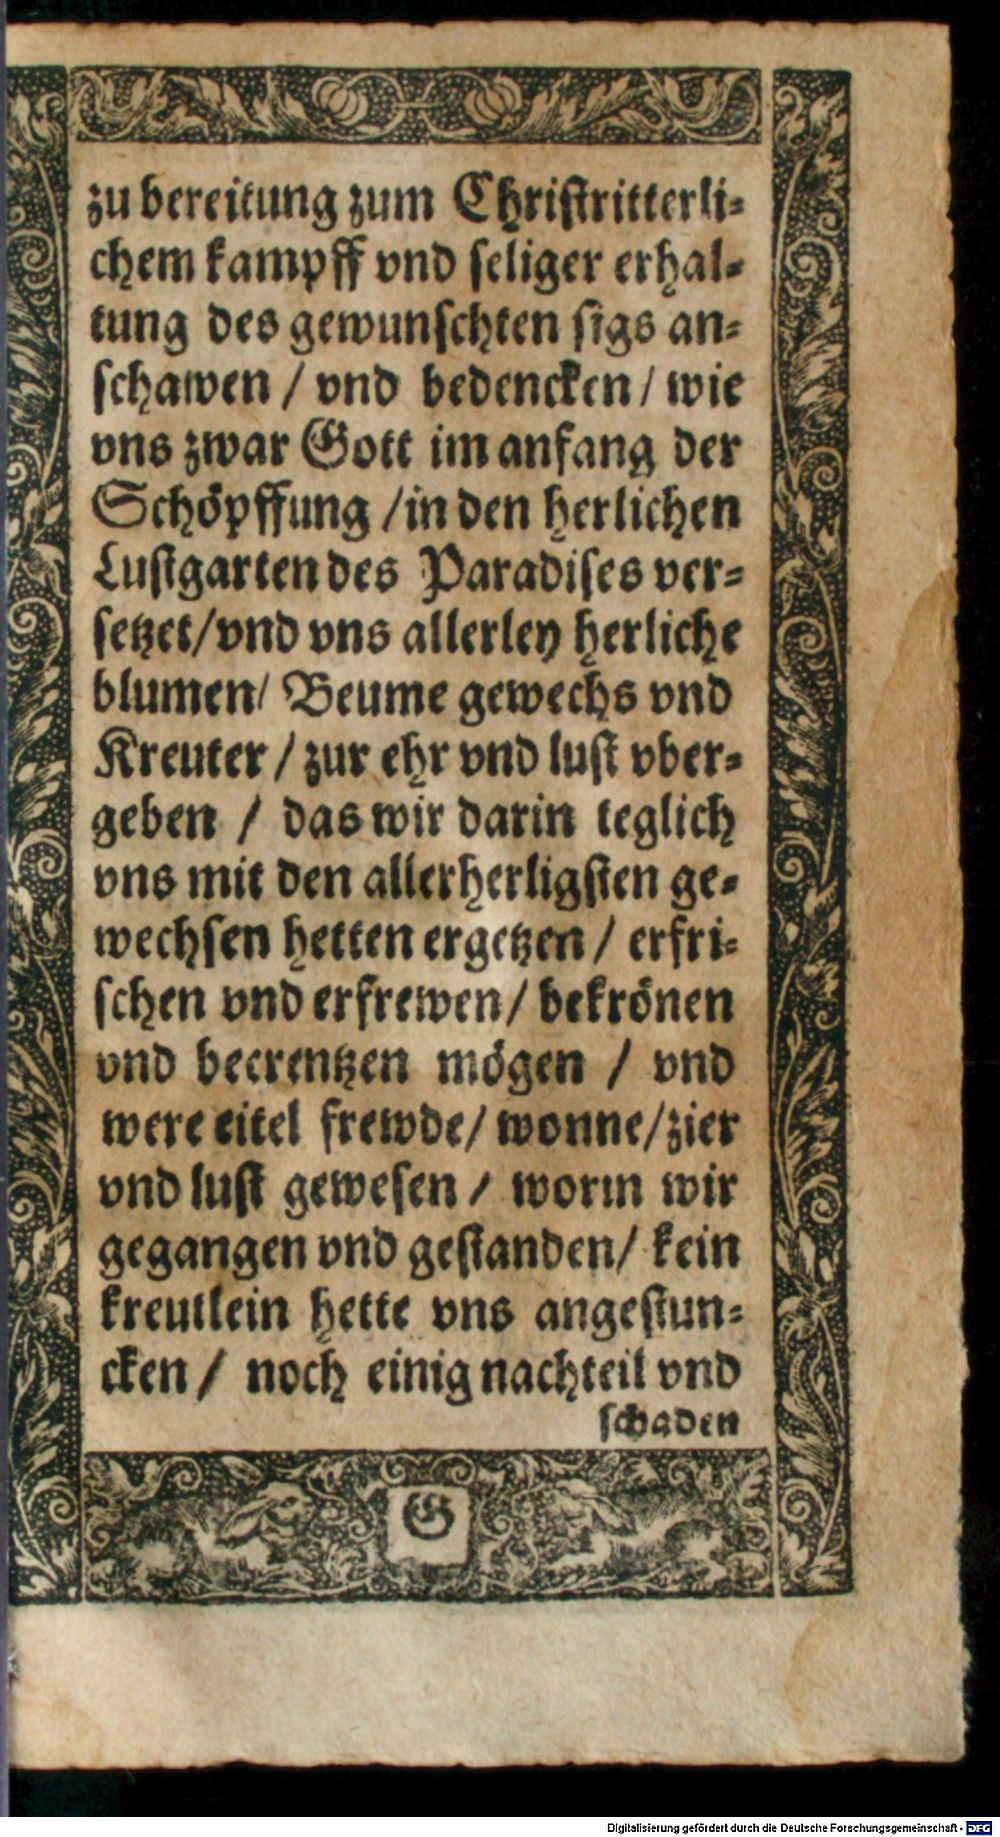 zu bereitung zum Christritterli-
chem kampff vnd seliger erhal-
tung des gewunschten sigs an-
schawen / vnd bedencken / wie
vns zwar Gott im anfang der
Schöpffung /in den herlichen
Lustgarten des Paradises ver-
setzet/vnd vns allerley herliche
blumen/ Beume gewechs vnd
Kreuter / zur ehr vnd lust vber-
geben / das wir darin teglich
vns mit den allerherligsten ge-
wechsen hetten ergetzen / erfri-
schen vnd erfrewen / bekrönen
vnd becrentzen mögen / vnd
were eitel frewde/ wonne/zier
vnd lust gewesen / worin wir
gegangen vnd gestanden/ kein
kreutlein hette vns angestun-
cken / noch einig nachteil vnd
schaden
G
Digitalisierung gefördert durch die Deutsche Forschungsgemeinschaft - DFG